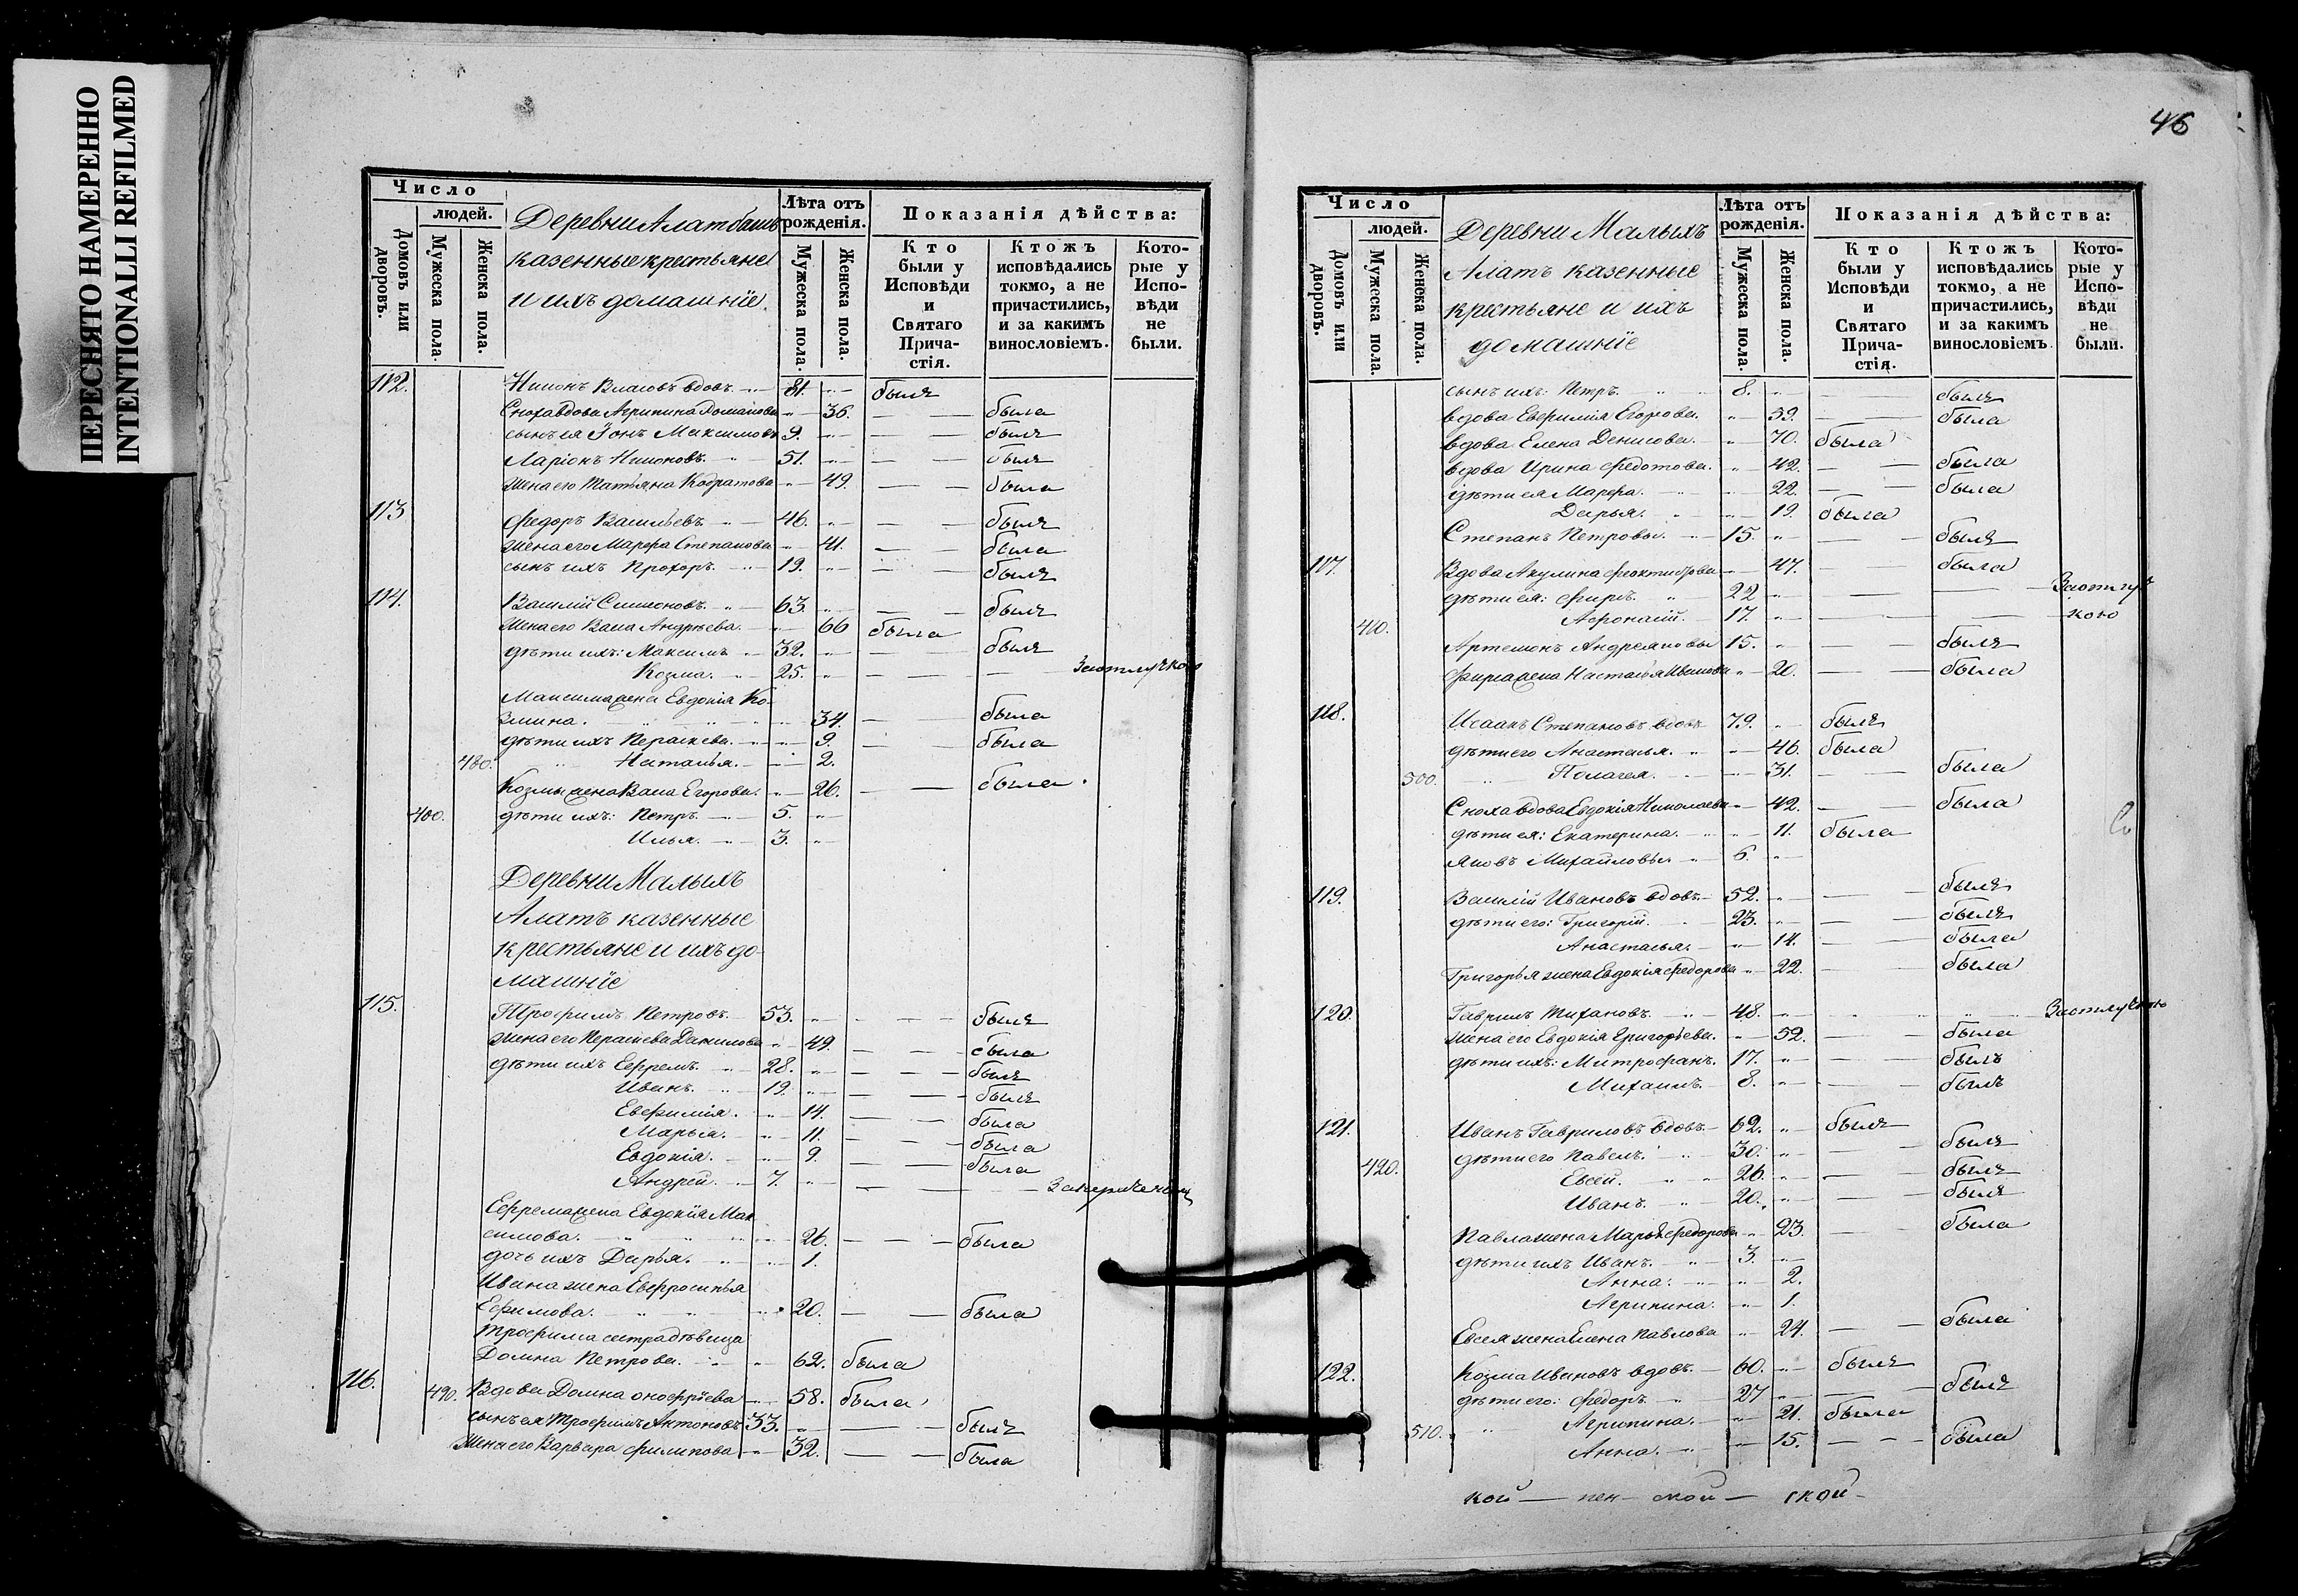 ПЕРЕСНЯТО НАМЕРЕННО
INTENTIONALLI REFILMED
Число
людей.
Домовъ или дворовъ.
Мужеска пола.
Женска пола.
Деревни Алатбашъ
казенные крестьяне
и ихъ домашніе.
Лѣта отъ рожденія.
Мужеска пола.
Женска пола.
Показанія дѣйства:
Кто были у Исповѣди и Святаго Прича-стія.
Ктожъ исповѣдались токмо, а не причастились, и за какимъ винословіемъ.
Кото-рые у Испо-вѣди не были.
112. Власовъ вдовъ. 81. былъ
Сноха вдова Агрипина 36. была
сынъ ея Іонъ Максимовъ 9. былъ
Ларіонъ 51. былъ
жена его Татьяна Кодратова 49. была
113 Федоръ Васильевъ 46. былъ
жена его Марфа Степанова 41. была
сынъ ихъ Прохоръ. 19. былъ
114. Василій Симоновъ. 63. былъ
жена его Васа Андрѣева. 66 была
дѣти ихъ: Максимъ 32. былъ
Козма. 25. За отлучкою
Максима жена Евдокія Ко-
змина. 34. была
дѣти ихъ Пераскева. 9. была
480. Наталья. 2.
Козмы жена Васа Егорова. 26. была
400. дѣти ихъ: Петръ 5.
Илья. 3.
Деревни Малыхъ
Алатъ казенные
крестьяне и ихъ до-
машніе
115. Трофимъ Петровъ. 53. былъ
жена его Пераскева Данилова 49. была
дѣти ихъ Ефремъ. 28. былъ
Иванъ. 19. былъ
Евфимія. 14. была
Марья. 11. была
Евдокія. 9. была
Андрей. 7.
Ефрема жена Евдокія Мак
симова. 26. была
дочь ихъ Дарья. 1.
Ивана жена Евфросинья
Ефимова. 20. была
Трофима сестра дѣвица
Домна Петрова. 62. была
116. 490. Вдова Домна Онофріева 58. была
сынъ ея Трофимъ Антоновъ 33. былъ
жена его Варвара Филипова 32. была
46
Число
людей.
Домовъ или дворовъ.
Мужеска пола.
Женска пола.
Деревни Малыхъ
Алатъ казенные
крестьяне и ихъ
домашніе
Лѣта отъ рожденія.
Мужеска пола.
Женска пола.
Показанія дѣйства:
Кто были у Исповѣди и Святаго Прича-стія.
Ктожъ исповѣдались токмо, а не причастились, и за какимъ винословіемъ.
Кото-рые у Испо-вѣди не были.
сынъ ихъ: Петръ. 8. былъ
вдова Евфимія Егорова. 59. была
вдова Елена Денисова. 70. была
вдова Ирина Федотова. 42. была
дѣти ея Марфа. 22. была
Дарья. 19. была
Степанъ Петровы. 15. былъ
117. Вдова Акулина 47. была
дѣти ея: Фирсъ. 22 За отлуч
410. Афонасій. 17. кою
Артемонъ Андреяновы 15. былъ
Фирса жена Настасья Иванова 20. была
118. Исаакъ Степановъ вдовъ 79. былъ
дѣти его Анастасья. 46. была
500. Полагея. 31. была
Сноха вдова Евдокія Николаева 42. была
дѣти ея: Екатерина. 11. была
Яковъ Михайловы 6.
119. Василій Ивановъ вдовъ 52. былъ
дѣти его: Григорій. 23. былъ
Анастасья. 14. была
Григорья жена Евдокія Федорова 22. была
120. Гаврилъ 48. За отлучкою
жена его Евдокія Григорьева. 52. была
дѣти ихъ: Митрофанъ. 17. былъ
Михаилъ. 8. былъ
121. Иванъ Гавриловъ вдовъ. 62. былъ
420. дѣти его Павелъ. 30. былъ
Евсей. 26. былъ
Иванъ. 20. былъ
Павла жена Марья Федорова 23. была
дѣти ихъ Иванъ. 3.
Анна. 2.
Агрипина. 1.
Евсея жена Елена Павлова 24. была
122. Козма Ивановъ вдовъ. 60. былъ
дѣти его: Федоръ. 27 былъ
510. Агрипина. 21. была
Анна. 15. была
кой — — ской — ской